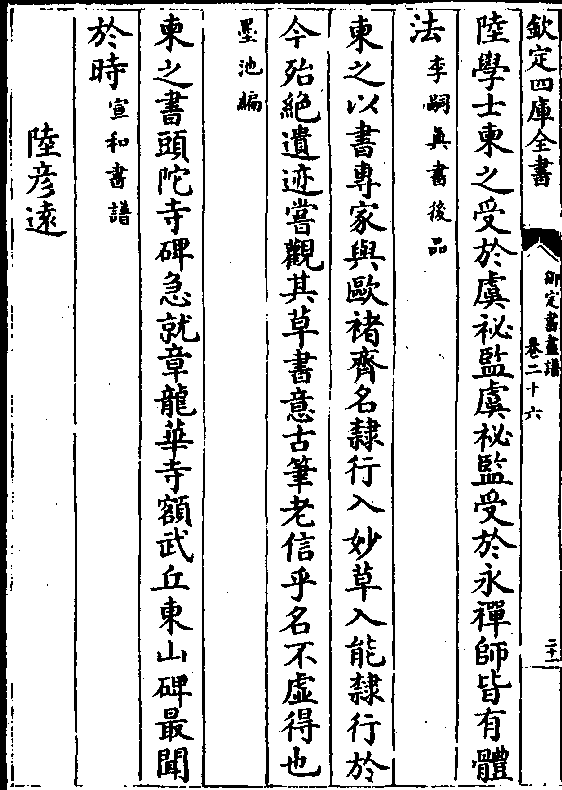 欽定四庫全書
御定書畫譜
卷二十六
二十二
陸學士柬之受於虞祕監虞祕監受於永禪師皆有體
法李嗣真書後品
柬之以書專家與歐褚齊名隸行入妙草入能隸行於
今殆絕遺迹嘗觀其草書意古筆老信乎名不虛得也
墨池編
柬之書頭陀寺碑急就章龍華寺額武丘東山碑最聞
於時宣和書譜
陸彦遠